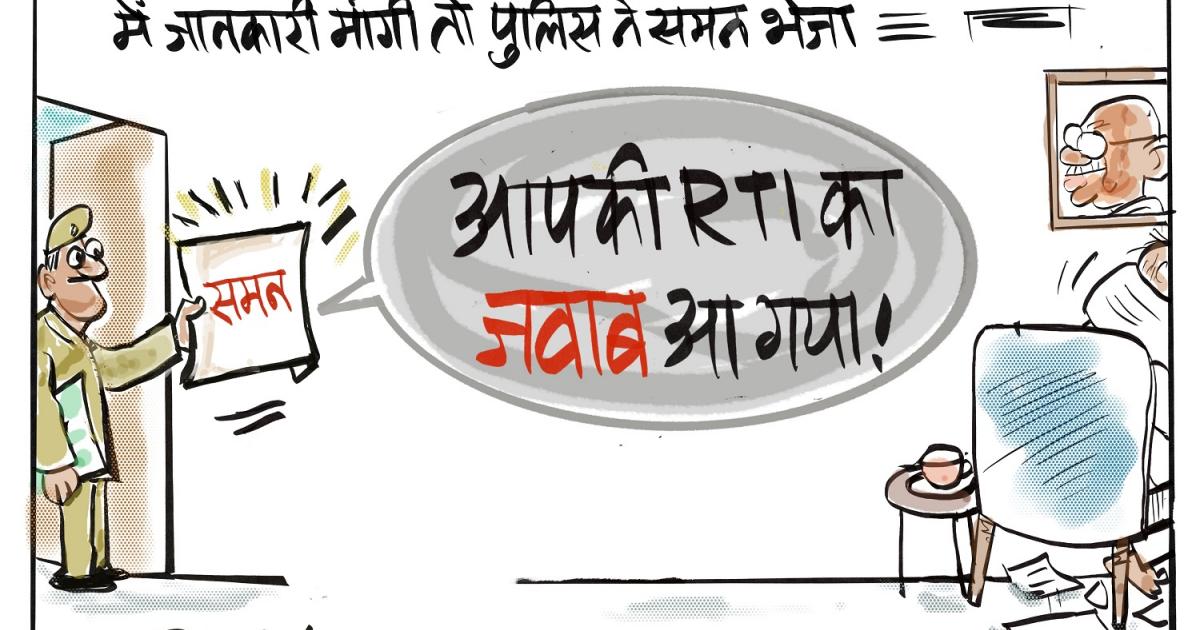 में जानकारी मांगी तो पुलिस ने समन भेजा
समन
आपकी RTI का
जवाब आ गया!